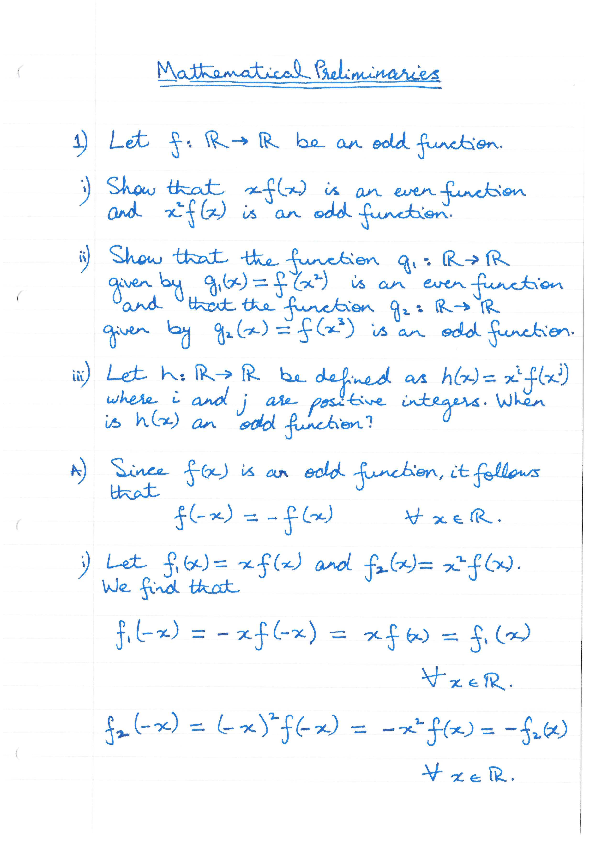 Mathematical Preliminaries
1) Let f: ℝ → ℝ be an odd function.
i) Show that xf(x) is an even function
and x²f(x) is an odd function.
ii) Show that the function g₁ : ℝ → ℝ
given by g₁(x) = f(x²) is an even function
and that the function g₂ : ℝ → ℝ
given by g₂(x) = f(x³) is an odd function.
iii) Let h: ℝ → ℝ be defined as h(x) = xⁱf(xʲ)
where i and j are positive integers. When
is h(x) an odd function?
A) Since f(x) is an odd function, it follows
that
f(-x) = -f(x) ∀ x ∈ ℝ.
i) Let f₁(x) = xf(x) and f₂(x) = x²f(x).
We find that
f₁(-x) = -xf(-x) = xf(x) = f₁(x)
∀ x ∈ ℝ.
f₂(-x) = (-x)²f(-x) = -x²f(x) = -f₂(x)
∀ x ∈ ℝ.